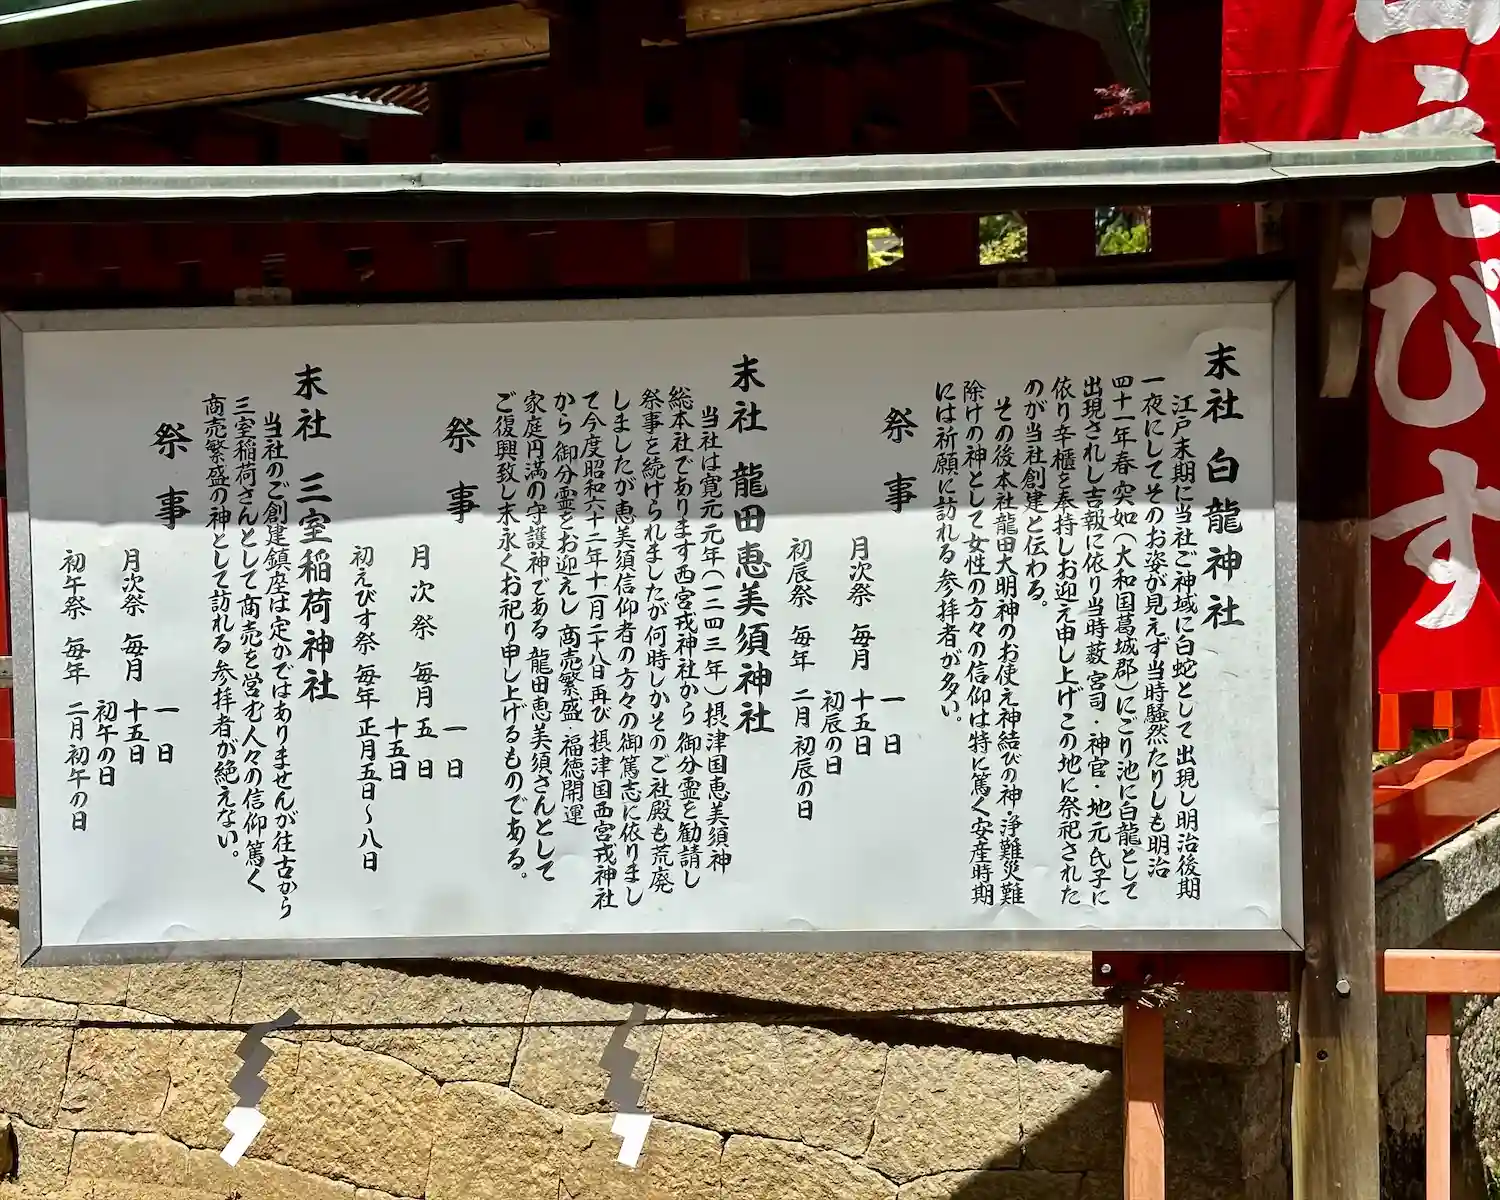 末社 白龍神社
江戸末期に当社ご神域に白蛇として出現し明治後期
一夜にしてそのお姿が見えず当時騒然たりしも明治
四十一年春突如(大和国葛城郡)にごり池に白龍として
出現されし吉報に依り当時薮宮司・神官・地元氏子に
依り辛櫃を奉持しお迎え申し上げこの地に祭祀された
のが当社創建と伝わる。
その後本社龍田大明神のお使え神結びの神・浄難災難
除けの神として女性の方々の信仰は特に篤く安産時期
には祈願に訪れる参拝者が多い。
祭事
月次祭 毎月 一日
十五日
初辰の日
初辰祭 毎年 二月初辰の日
末社 龍田恵美須神社
当社は寛元元年(一二四三年)摂津国恵美須神
総本社であります西宮戎神社から御分霊を勧請し
祭事を続けられましたが何時しかそのご社殿も荒廃
しましたが恵美須信仰者の方々の御篤志に依りまし
て今度昭和六十二年十一月二十八日再び摂津国西宮戎神社
から御分霊をお迎えし商売繁盛・福徳開運
家庭円満の守護神である龍田恵美須さんとして
ご復興致し末永くお祀り申し上げるものである。
祭事
月次祭 毎月 一日
五日
十五日
初えびす祭 毎年 正月五日〜八日
末社 三室稲荷神社
当社のご創建鎮座は定かではありませんが往古から
三室稲荷さんとして商売を営む人々の信仰篤く
商売繁盛の神として訪れる参拝者が絶えない。
祭事
月次祭 毎月 一日
十五日
初午の日
初午祭 毎年 二月初午の日
えびす